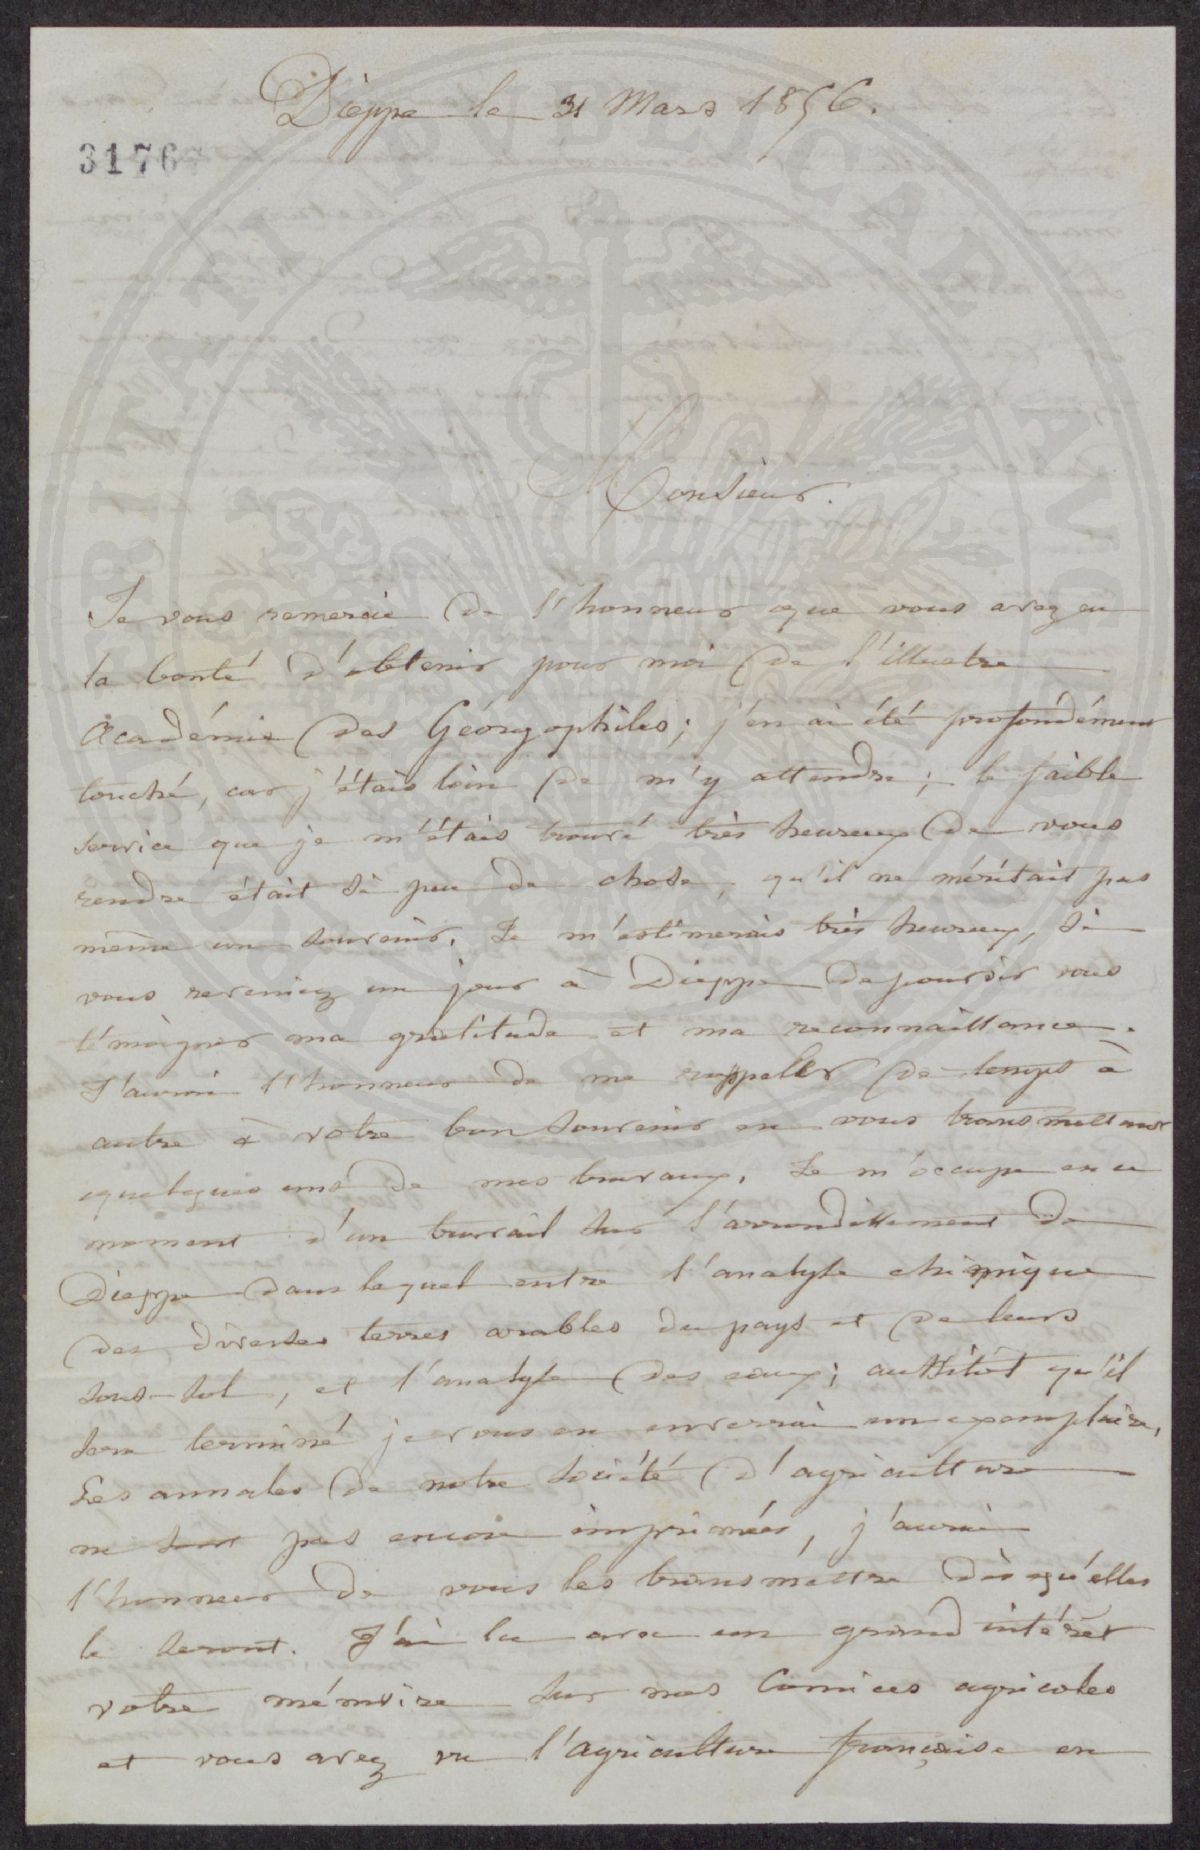 Dieppe le 31 Mars 1856.
3176
Monsieur.
Je vous remercie de l'honneur que vous avez eu
la bonté d'obtenir pour moi de l'illustre
Académie des Géorgophiles; j'en ai été profondément
touché, car j'étais loin de m'y attendre; le faible
service que je m'étais trouvé très heureux de vous
rendre était si peu de chose, qu'il ne méritait pas
même un souvenir. Je m'estimerais très heureux, si
vous reveniez un jour à Dieppe de pouvoir vous
témoigner ma gratitude et ma reconnaissance.
J'aurai l'honneur de me rappeller de temps à
autre à votre bon souvenir en vous transmettant
quelques uns de mes travaux. Je m'occupe en ce
moment d'un travail sur l'arrondissement de
Dieppe dans lequel entre l'analyse chimique
des diverses terres arables du pays et de leurs
sous-sol, et l'analyse des eaux; aussitôt qu'il
sera terminé je vous en enverrai un exemplaire.
Les annales de notre société d'agriculture
ne sont pas encore imprimées, j'aurai
l'honneur de vous les transmettre dès qu'elles
le seront. J'ai lu avec un grand intérêt
votre mémoire sur nos Comices agricoles
et vous avez vu l'agriculture française en